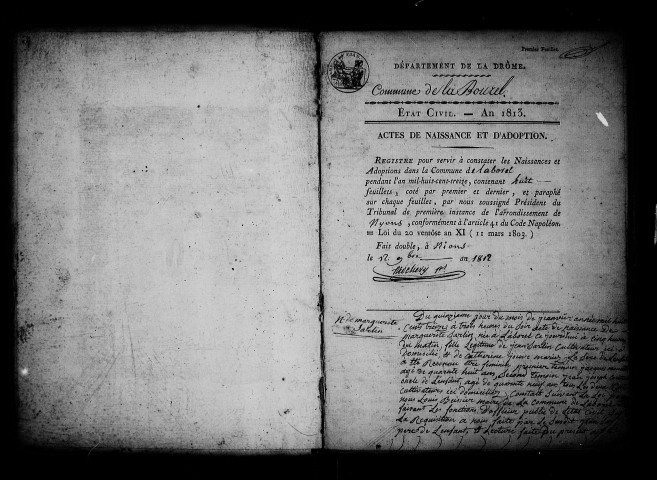 Premier Feuillet
DÉPARTEMENT DE LA DRÔME.
Commune de la Bourel.
ÉTAT CIVIL. — AN 1813.
ACTES DE NAISSANCE ET D'ADOPTION.
REGISTRE pour servir à constater les Naissances et
Adoptions dans la Commune de laborel
pendant l'an mil-huit-cent-treize, contenant huit
feuillets, coté par premier et dernier, et paraphé
sur chaque feuillet, par nous soussigné Président du
Tribunal de première instance de l'arrondissement de
Nyons, conformément à l'article 41 du Code Napoléon,
au Loi du 20 ventôse an XI (11 mars 1803.)
Fait double, à Nions
le 12 9bre an 1812
Nce de margueritte
Jarlin
Du quinzieme jour du mois de janvier année mil huit
Cent treize à trois heures du Soir acte de naissance de
marguerite Jarlin née a Laborel ce jourdhui à Cinq heures
du Matin, fille Légitime de Jean Jarlin Cultivateur
Domicilié, et de Catherine mariés. Le Sexe de Lenfant
a été Reconnu être féminin, premier temoin jacques
agé de quarante huit ans, Second temoin
oncle de Lenfant, agé de quarante neuf ans tous les deux
Cultivateurs ici domiciliés, Constaté Suivant La Loi
nous Louis maire de La Commune de Laborel
faisant Les fonctions d'officier public de Létat Civil
La Requisition a nous faite par Le Susdit Jean
pere de Lenfant, et Lecture faite du present